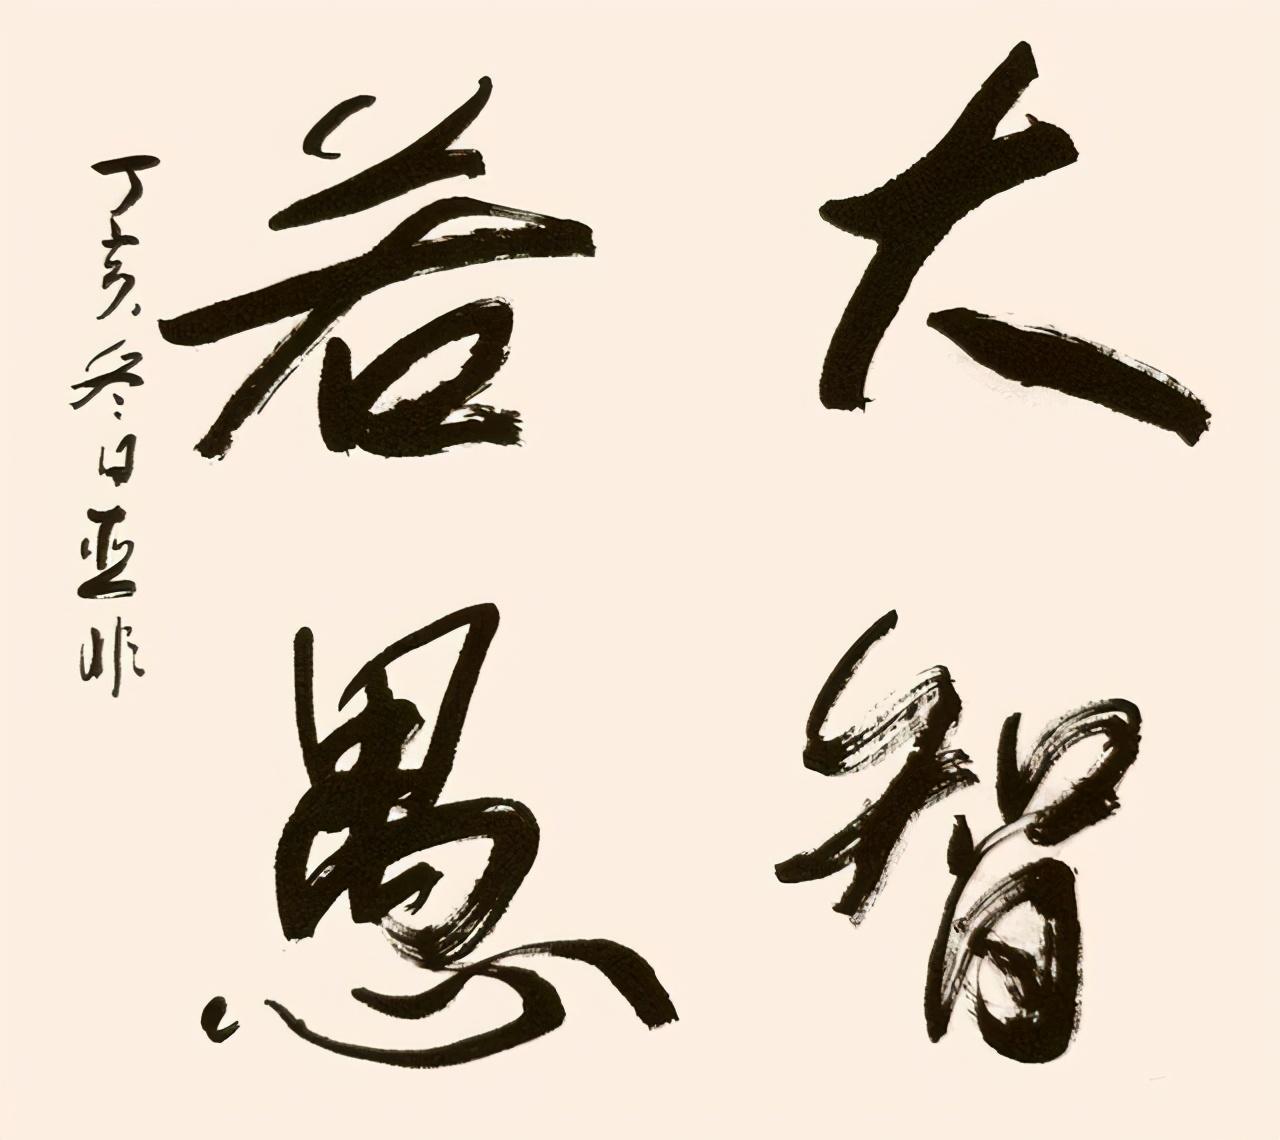 大智
若愚
丁亥冬日亚非